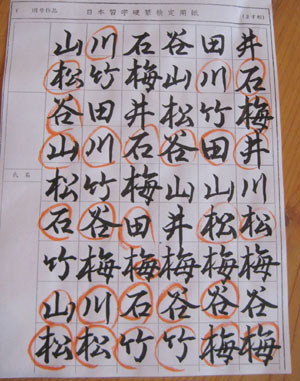 日本習字硬筆検定用紙
山川石谷田井
松竹梅山川石
谷田井松竹梅
山川石谷田井
松竹梅山山川
石谷田井松松
竹梅梅梅梅梅
山川石谷谷谷
松松竹竹梅梅
氏名